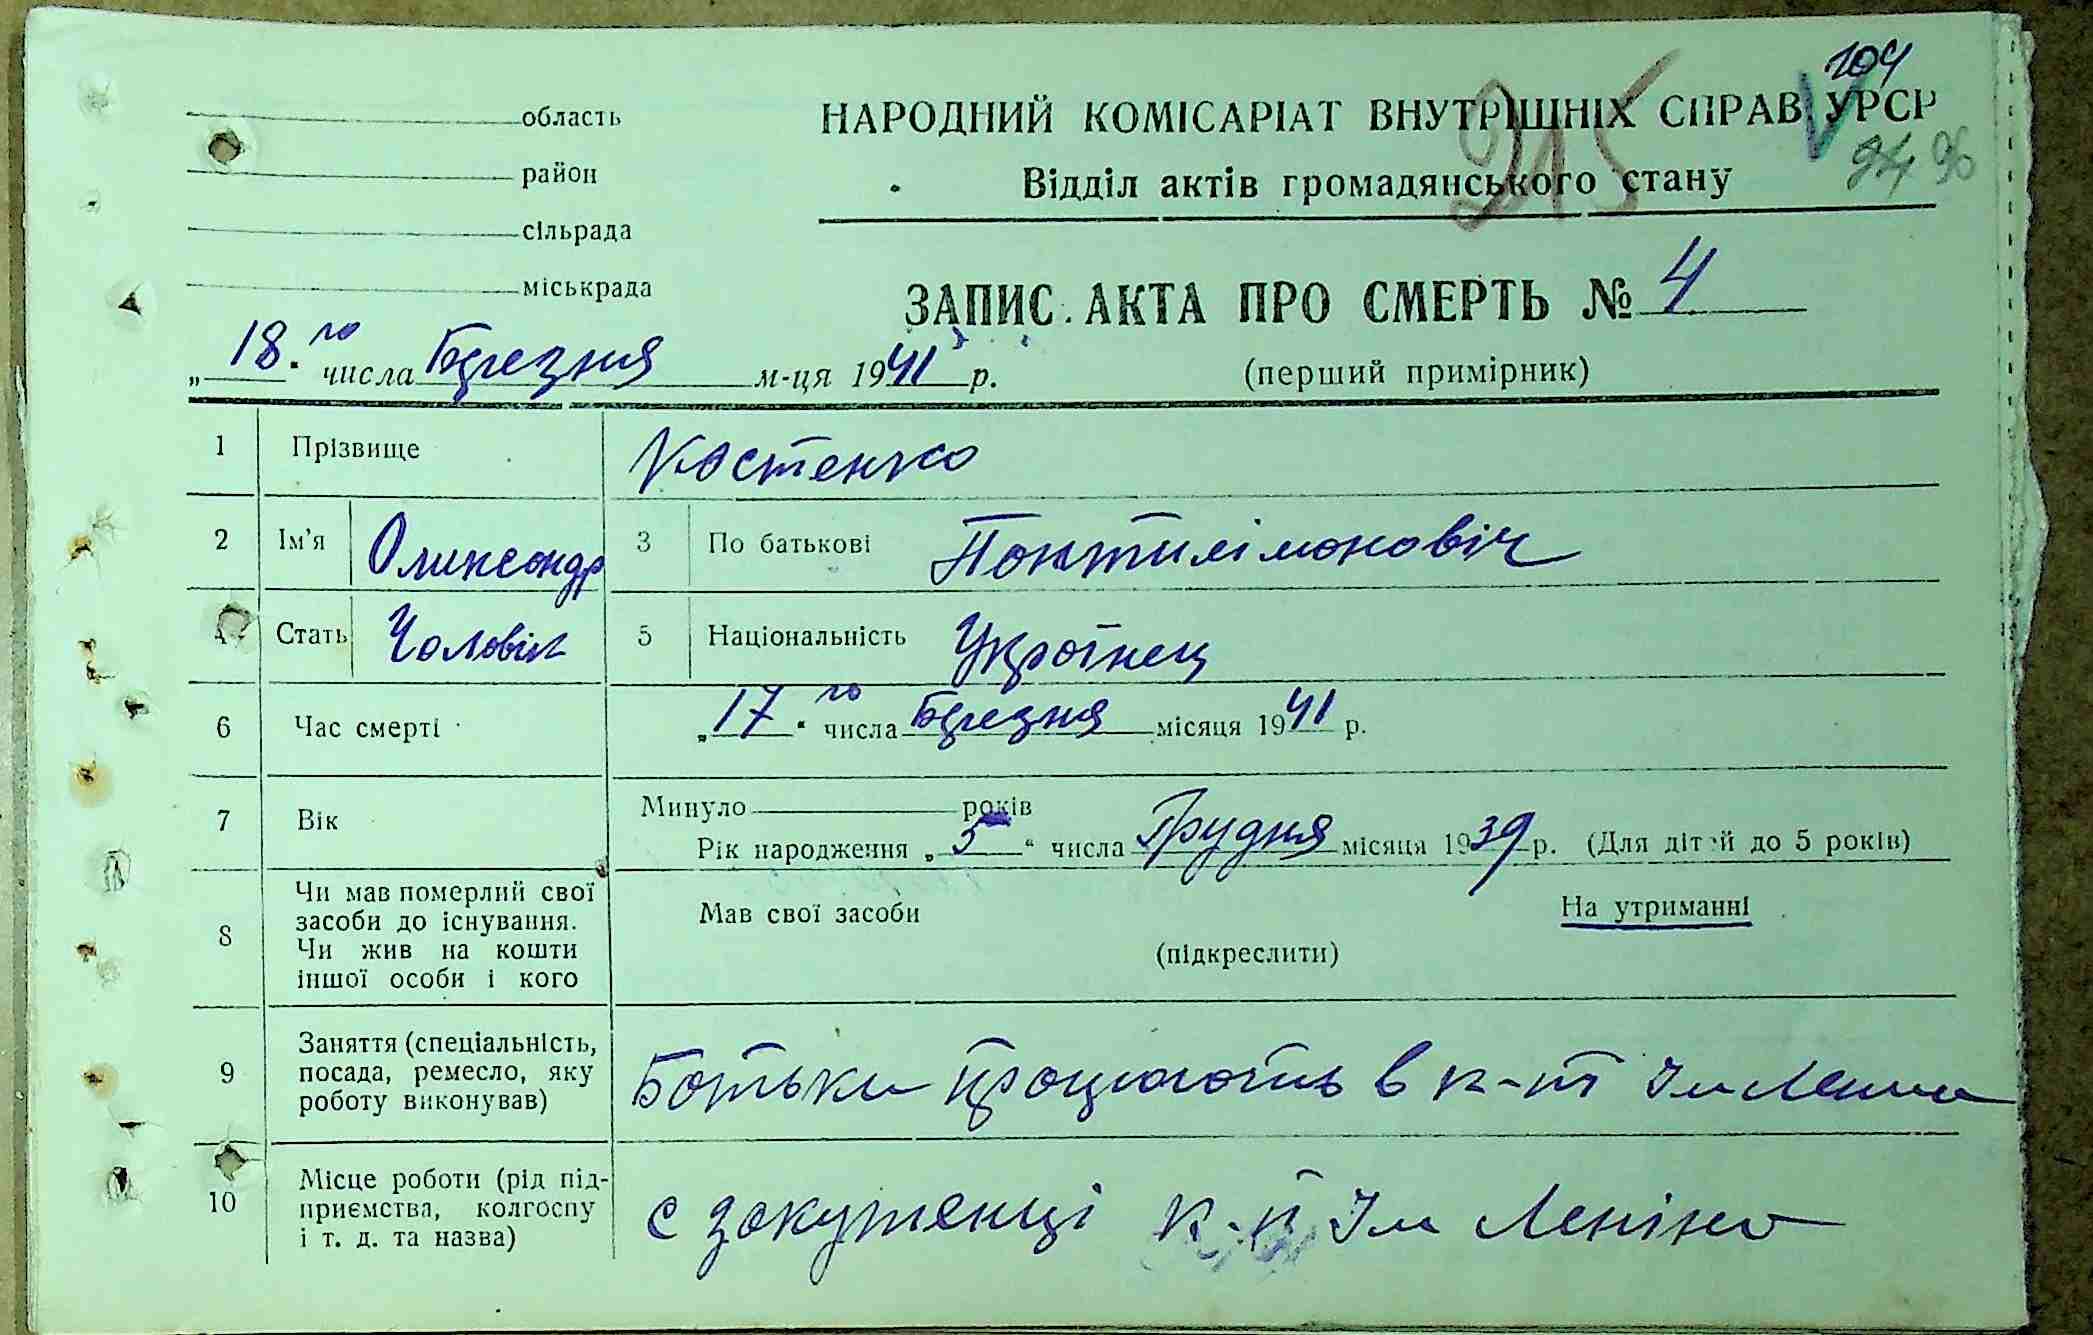 104
215
94 96
область
район
сільрада
міськрада
НАРОДНИЙ КОМІСАРІАТ ВНУТРІШНІХ СПРАВ УРСР
Відділ актів громадянського стану
ЗАПИС АКТА ПРО СМЕРТЬ № 4
(перший примірник)
„18“ го числа Березня м-ця 1941 р.
1 Прізвище Костенко
2 Ім'я Олександр 3 По батькові Понтилімонович
4 Стать Чоловік 5 Національність Українец
6 Час смерті „17“ го числа Березня місяця 1941 р.
7 Вік Минуло років
Рік народження „5“ числа Грудня місяця 1939 р. (Для дітей до 5 років)
8 Чи мав померлий свої
засоби до існування.
Чи жив на кошти
іншої особи і кого
Мав свої засоби На утриманні
(підкреслити)
9 Заняття (спеціальність,
посада, ремесло, яку
роботу виконував)
Ботьки процюють в к-пі Ім Леніна
10 Місце роботи (рід під-
приємства, колгоспу
і т. д. та назва)
с к-п Ім Леніна